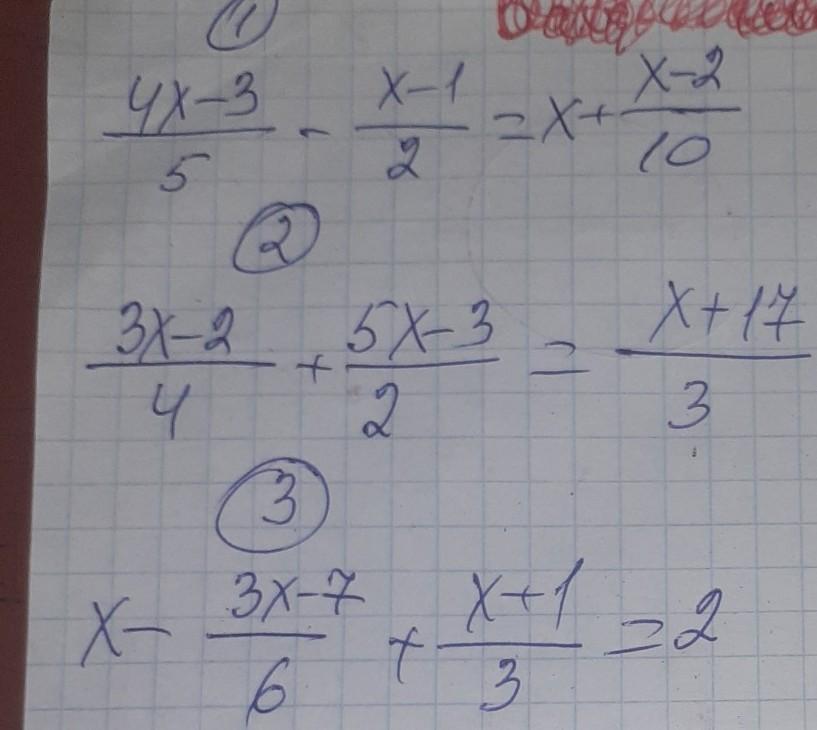 1
(4x-3)/5 - (x-1)/2 = x + (x-2)/10
2
(3x-2)/4 + (5x-3)/2 = (x+17)/3
3
x - (3x-7)/6 + (x+1)/3 = 2